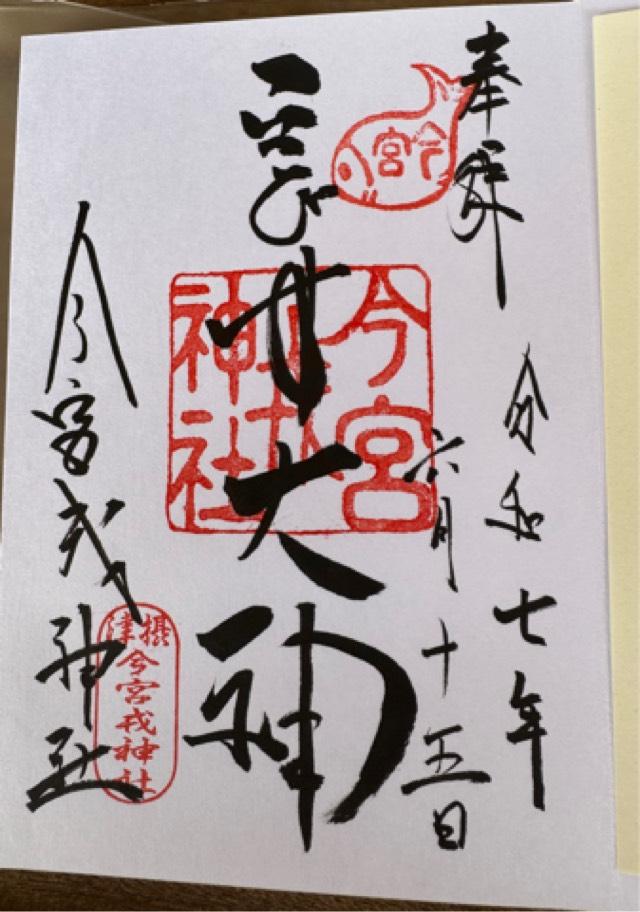 奉拝
令和七年
六月十五日
今宮
今宮戎神社
大神
今宮戎神社
摂津
今宮戎神社